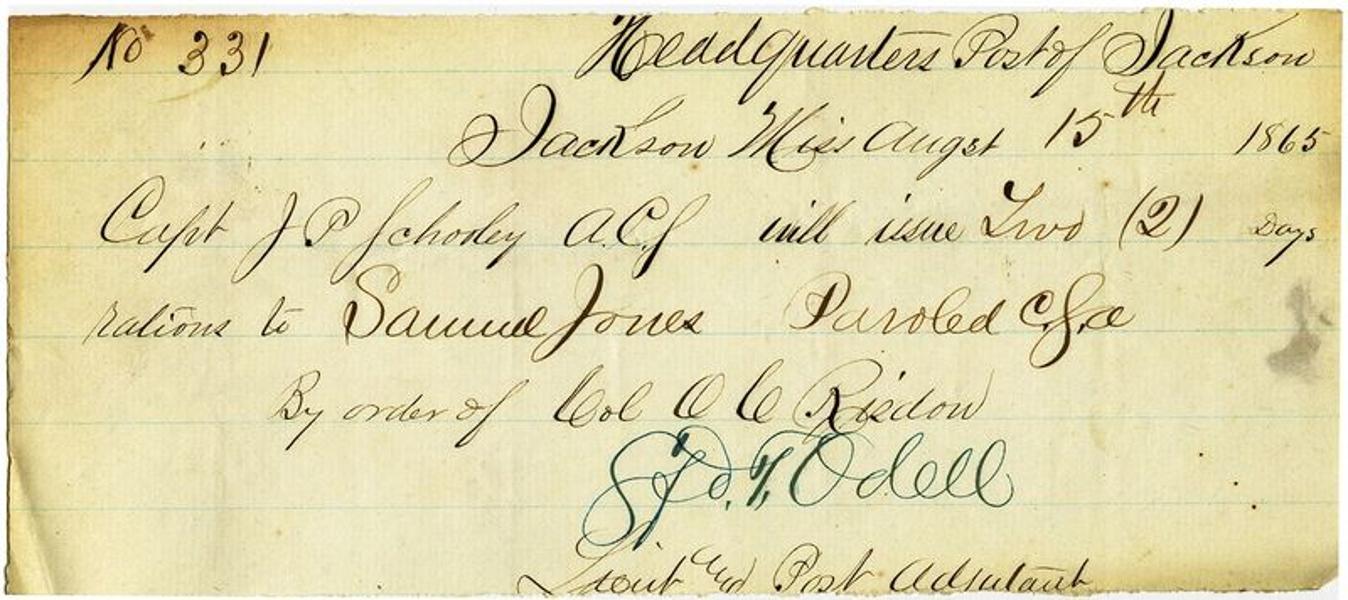 No 331
Headquarters Post of Jackson
Jackson Miss Augst 15th 1865
Capt J P Schodey A.C.S will issue Two (2) Days
rations to Samuel Jones Paroled C.S.A
By order of Col O C Risdon
D. T. Odell
Lieut and Post Adjutant